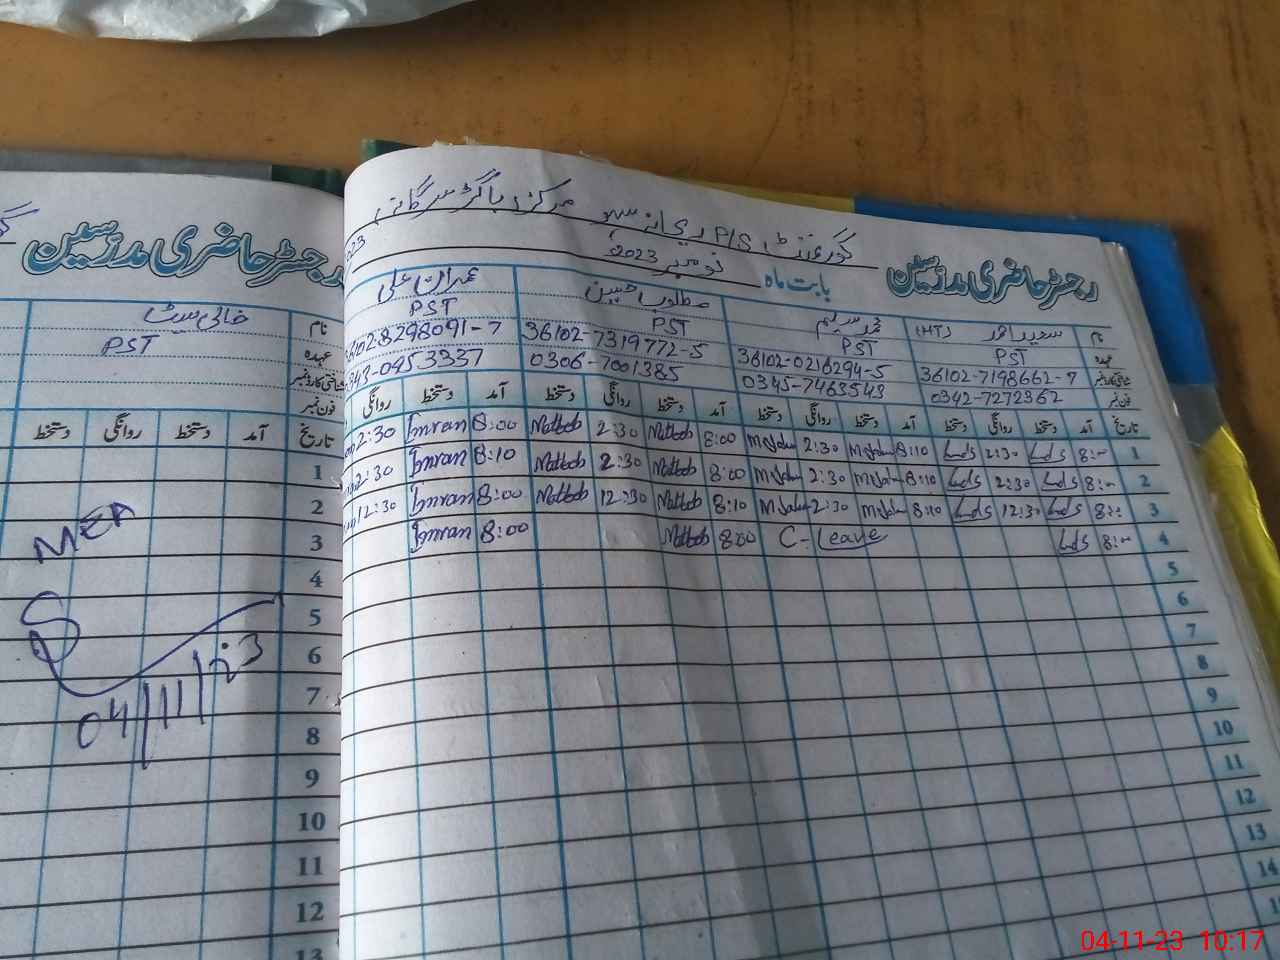 گورنمنٹ P/S
مرکز باگڑ سرگانہ
رجسٹر حاضری مدرسین
بابت ماہ نومبر 2023
نام سعید احمد (HT) محمد سلیم مطلوب حسین عمران علی
عہدہ PST PST PST PST
شناختی کارڈ نمبر 36102-7198662-7 36102-0216294-5 36102-7319772-5 36102-8298091-7
فون نمبر 0342-7272362 0345-7463543 0306-7001385 0343-0953337
تاریخ آمد دستخط روانگی دستخط آمد دستخط روانگی دستخط آمد دستخط روانگی دستخط آمد دستخط روانگی
1 8:00 2:30 8:10 2:30 8:00 Matloob 2:30 Matloob 8:00 Imran 2:30
2 8:00 2:30 8:10 2:30 8:00 Matloob 2:30 Matloob 8:10 Imran 2:30
3 8:00 12:30 8:10 2:30 8:10 Matloob 12:30 Matloob 8:00 Imran 12:30
4 8:00 C-Leave 8:00 Matloob 8:00 Imran
5
6
7
8
9
10
11
12
13
14
رجسٹر حاضری مدرسین
نام خالی سیٹ
عہدہ PST
شناختی کارڈ نمبر
فون نمبر
تاریخ آمد دستخط روانگی دستخط
1
2
3
4
5
6
7
8
9
10
11
12
13
MEA
04/11/23
04-11-23 10:17